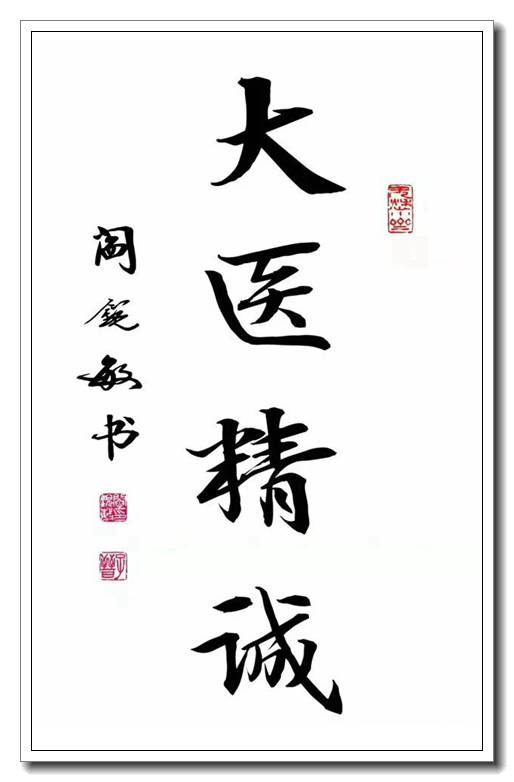 大医精诚
阎锐敏书